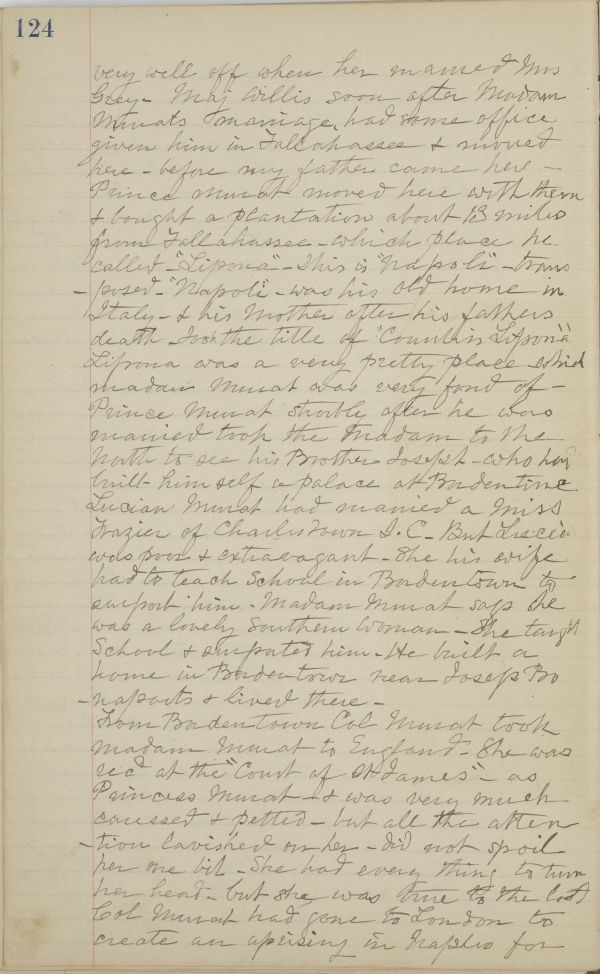 124
very well off when her married Mrs
Grey - Maj Willis soon after Madam
Murats marriage, had some office
given him in Tallahassee & moved
here - before my father came here -
Prince Murat moved here with them
& bought a plantation about 13 miles
from Tallahassee - which place he
called - "Lipona" - this is "Napoli" - trans
- posed - "Napoli" - was his old home in
Italy - & his Mother after his fathers
death - took the title of "Countess Lipona"
Lipona was a very pretty place which
madam Murat was very fond of -
Prince Murat shortly after he was
married took the Madam to the
North to see his Brother Joseph - who had
built himself a palace at
Lucian Murat had married a Miss
Frazier of Charlestown S.C - But Lucien
was poor & extravagant - She his wife
had to teach School in Bordentown to
suport him - Madam Murat says she
was a lovely Southern Woman - She taught
School & suported him - He built a
home in Bordentown near Joseph Bo
- naparts & lived there -
From Bordentown Col Murat took
madam Murat to England - She was
recd at the "Court of St James" - as
Princess Murat - & was very much
caressed & petted - but all the atten
- tion lavished on her - did not spoil
her one bit - She had every thing to turn
her head - but she was true to the last
Col Murat had gone to London to
create an uprising in Naples for